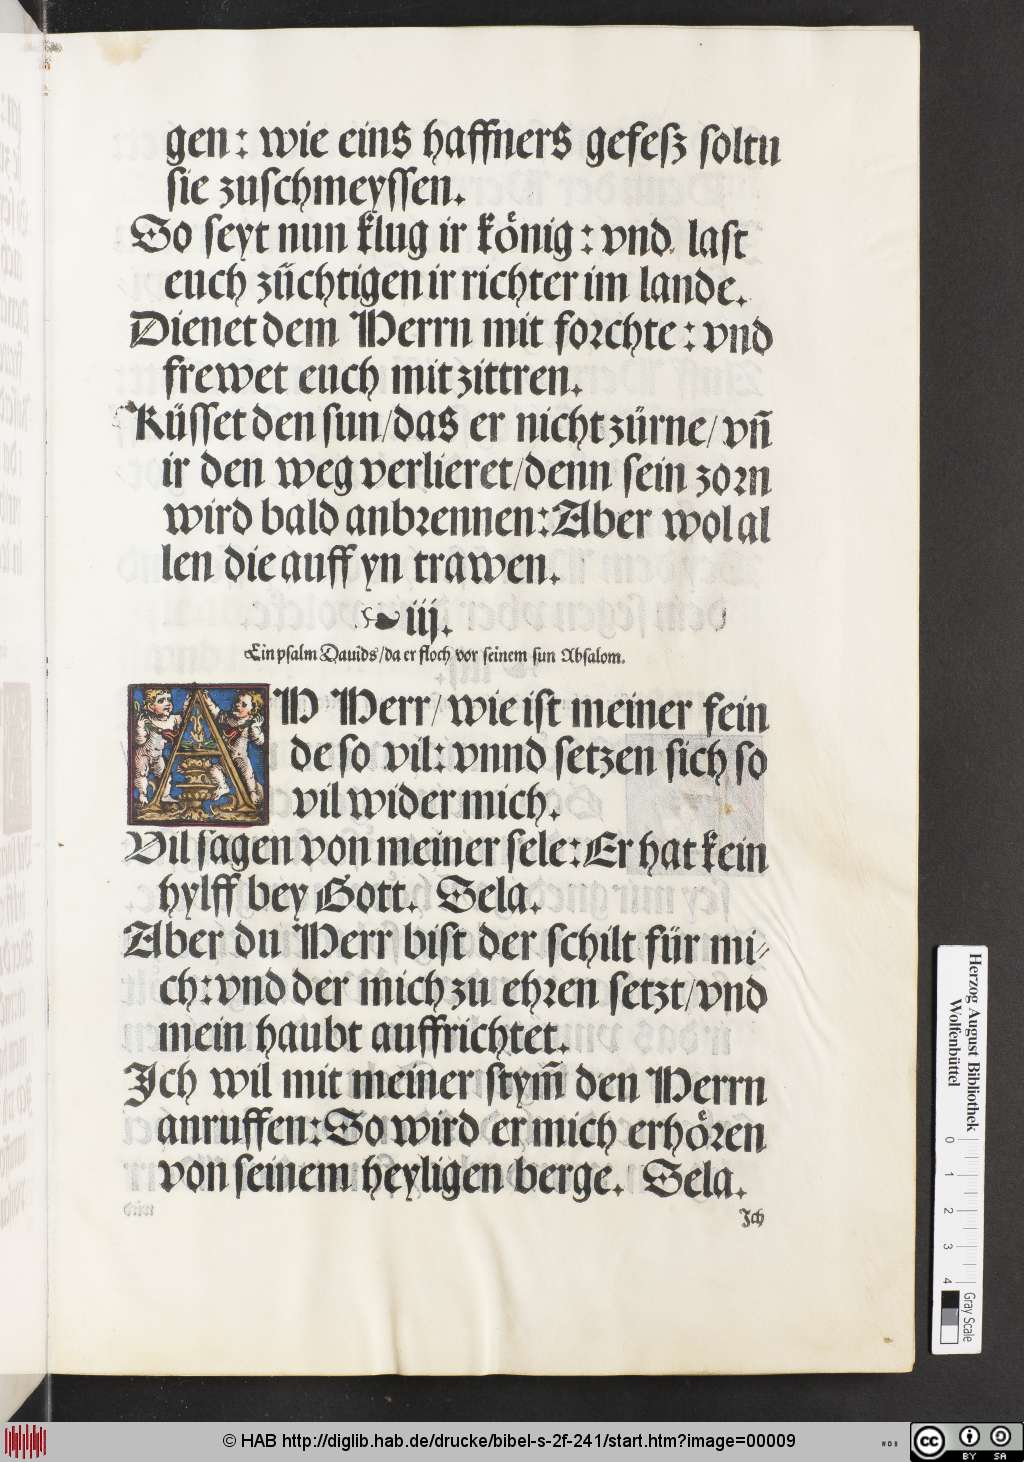 gen: wie eins haffners gefesz soltu
sie zuschmeyssen.
So seyt nun klug ir koͤnig: vnd last
euch züchtigen ir richter im lande.
Dienet dem Herrn mit forchte: vnd
frewet euch mit zittren.
Küsset den sun/das er nicht zürne/vn̄
ir den weg verlieret/denn sein zorn
wird bald anbrennen: Aber wol al
len die auff yn trawen.
iij.
Ein psalm Dauids/da er floch vor seinem sun Absalom.
AH Herr/wie ist meiner fein
de so vil: vnnd setzen sich so
vil wider mich.
Vil sagen von meiner sele: Er hat kein
hylff bey Gott. Sela.
Aber du Herr bist der schilt für mi⸗
ch: vnd der mich zu ehren setzt/vnd
mein haubt auffrichtet.
Ich wil mit meiner stym̄ den Herrn
anruffen: So wird er mich erhoͤren
von seinem heyligen berge. Sela.
Ich
Herzog August Bibliothek
Wolfenbüttel
0 1 2 3 4
Gray Scale
© HAB http://diglib.hab.de/drucke/bibel-s-2f-241/start.htm?image=00009
WDB
cc BY SA